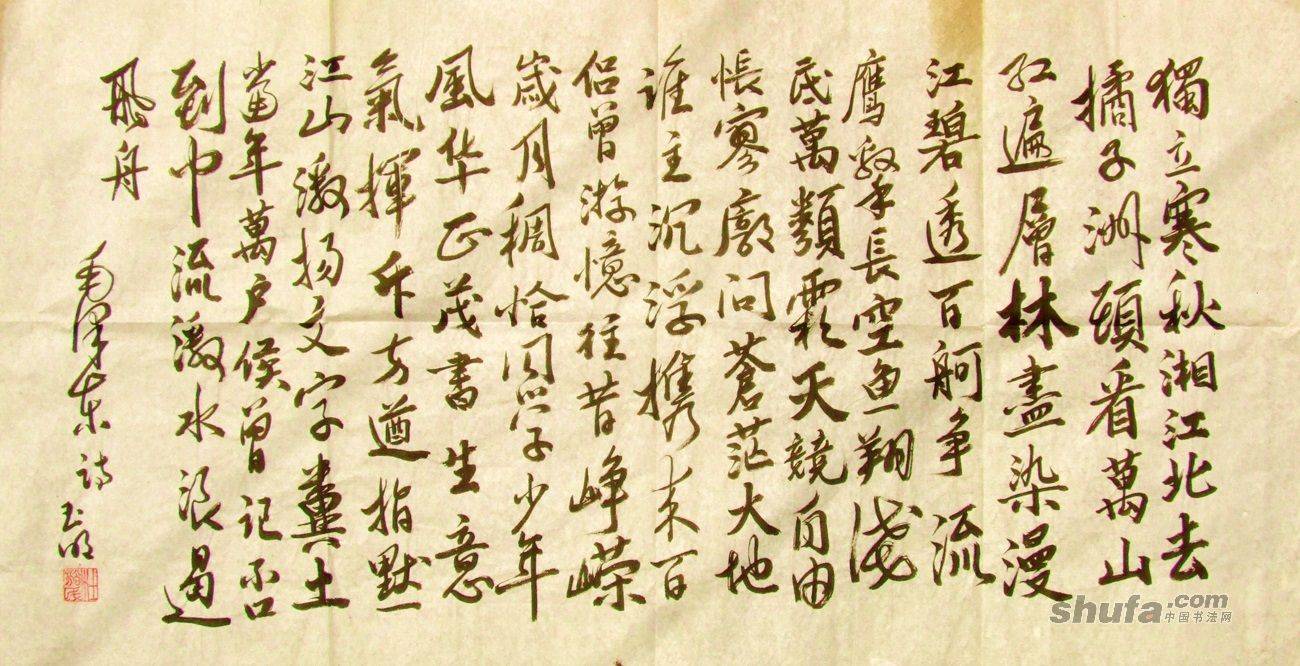 獨立寒秋湘江北去
橘子洲頭看萬山
红遍層林盡染漫
江碧透百舸争流
鹰擊長空鱼翔淺
底萬類霜天競自由
悵寥廓问蒼茫大地
谁主沉浮携来百
侣曾游憶往昔峥嵘
歲月稠恰同学少年
風华正茂書生意
氣揮斥方遒指點
江山激扬文字糞土
當年萬户侯曾记否
到中流激水浪遏
飛舟
毛泽东詩 玉明
shufa.com
中国书法网